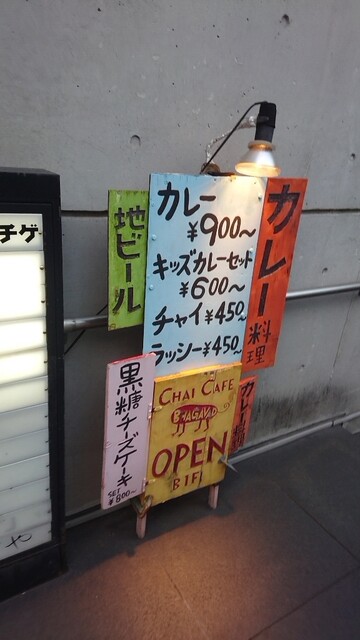 チゲ
や
地ビール
カレー
¥900~
キッズカレーセット
¥600~
チャイ ¥450~
ラッシー ¥450~
カレー料理
黒糖チーズケーキ
SET
¥800~
CHAI CAFE
BHAGAVAD
OPEN
B1F
カレー